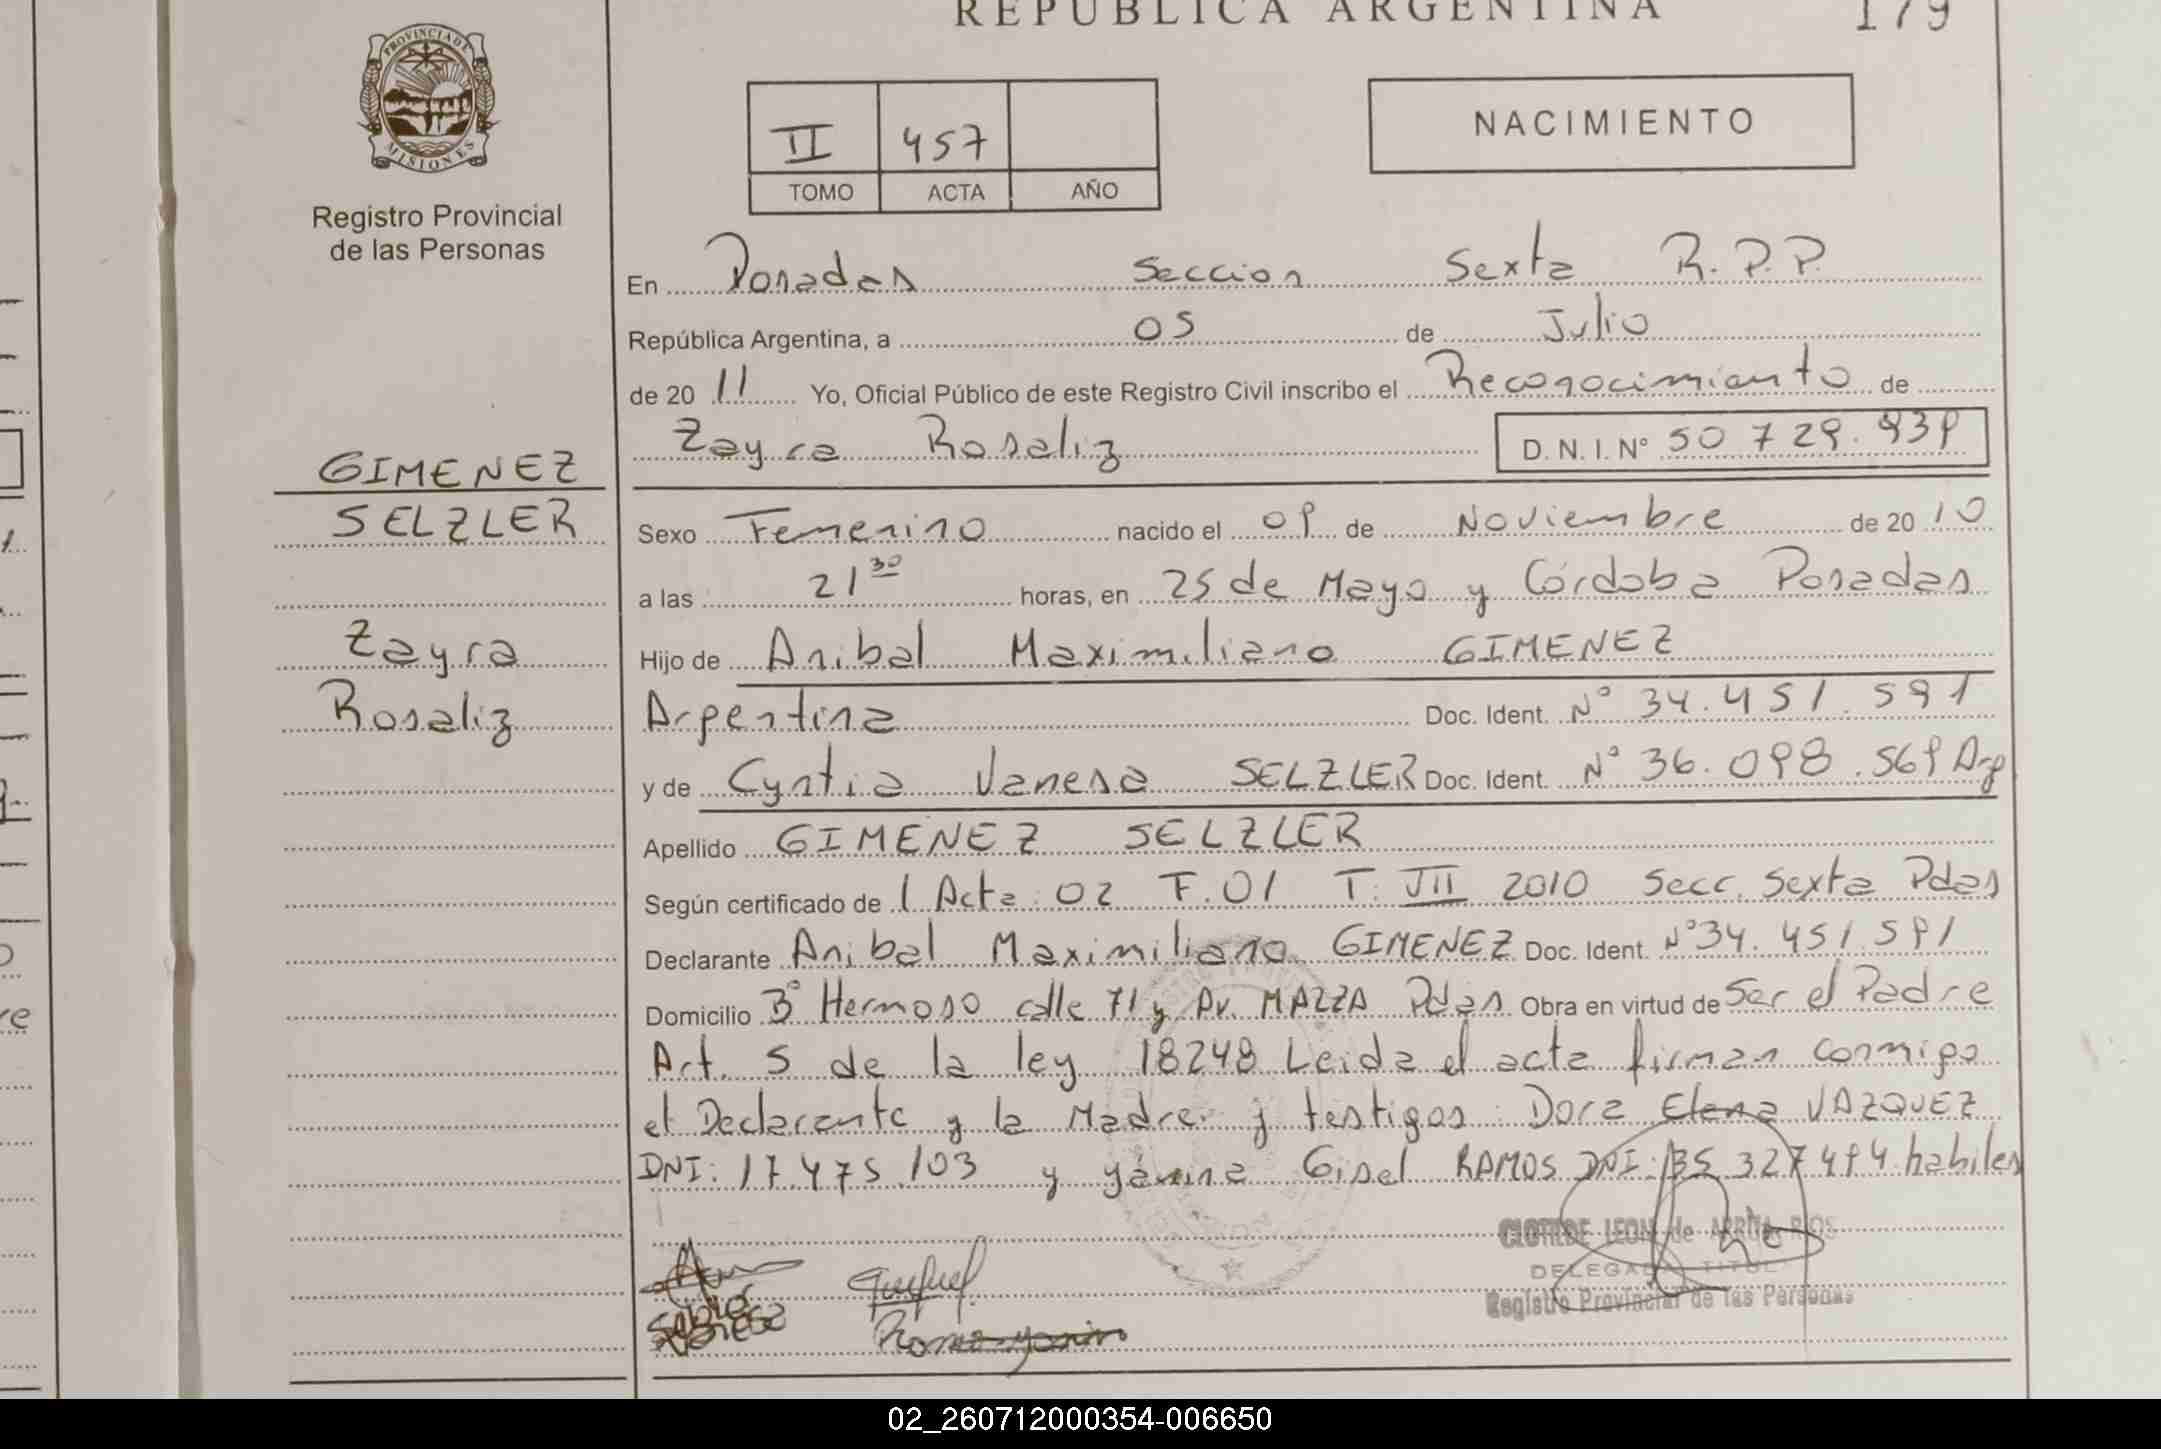 REPUBLICA ARGENTINA 179
PROVINCIA DE MISIONES
Registro Provincial
de las Personas
II 457
TOMO ACTA AÑO
NACIMIENTO
En Posadas Seccion Sexta R.P.P.
República Argentina, a 05 de Julio
de 20 11 Yo, Oficial Público de este Registro Civil inscribo el Reconocimiento de
Zayra Rosaliz D.N.I. Nº 50 729.939
GIMENEZ
SELZLER
Zayra
Rosaliz
Sexo Femenino nacido el 09 de Noviembre de 20 10
a las 21 30 horas, en 25 de Mayo y Córdoba Posadas
Hijo de Anibal Maximiliano GIMENEZ
Argentina Doc. Ident. Nº 34.451.591
y de Cyntia Vanesa SELZLER Doc. Ident. Nº 36.098.569 Arg
Apellido GIMENEZ SELZLER
Según certificado de 1 Acta: 02 F.01 T. VII 2010 Secc. Sexta Pdas
Declarante Anibal Maximiliano GIMENEZ Doc. Ident. Nº 34.451.591
Domicilio Bº Hermoso calle 71 y Av. MAZZA Pdas. Obra en virtud de Ser el Padre
Art. 5 de la ley 18248 Leida el acta firman conmigo
el Declarante y la Madre. y testigos: Dora Elena VAZQUEZ
DNI: 17.475.103 y yanina Gisel RAMOS DNI: 35 327 494 habiles
CLOTILDE LEON de ARRUA RIOS
DELEGADA TITUL
Registro Provincial de las Personas
02_260712000354-006650